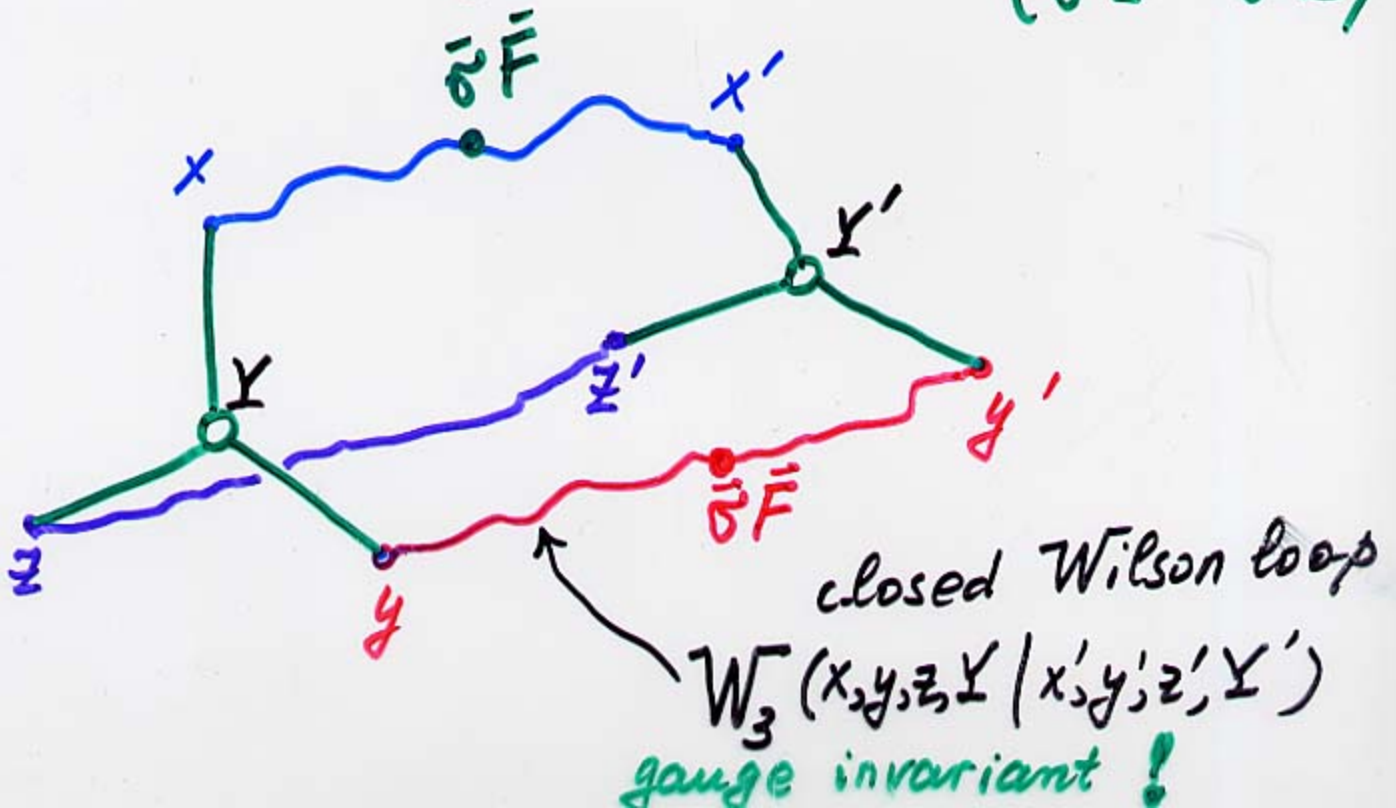 σ̄ F̄
x'
x
Y'
Y
z'
y'
σ̄ F̄
z
closed Wilson loop
y
W₃ (x,y,z,Y | x',y',z',Y')
gauge invariant !